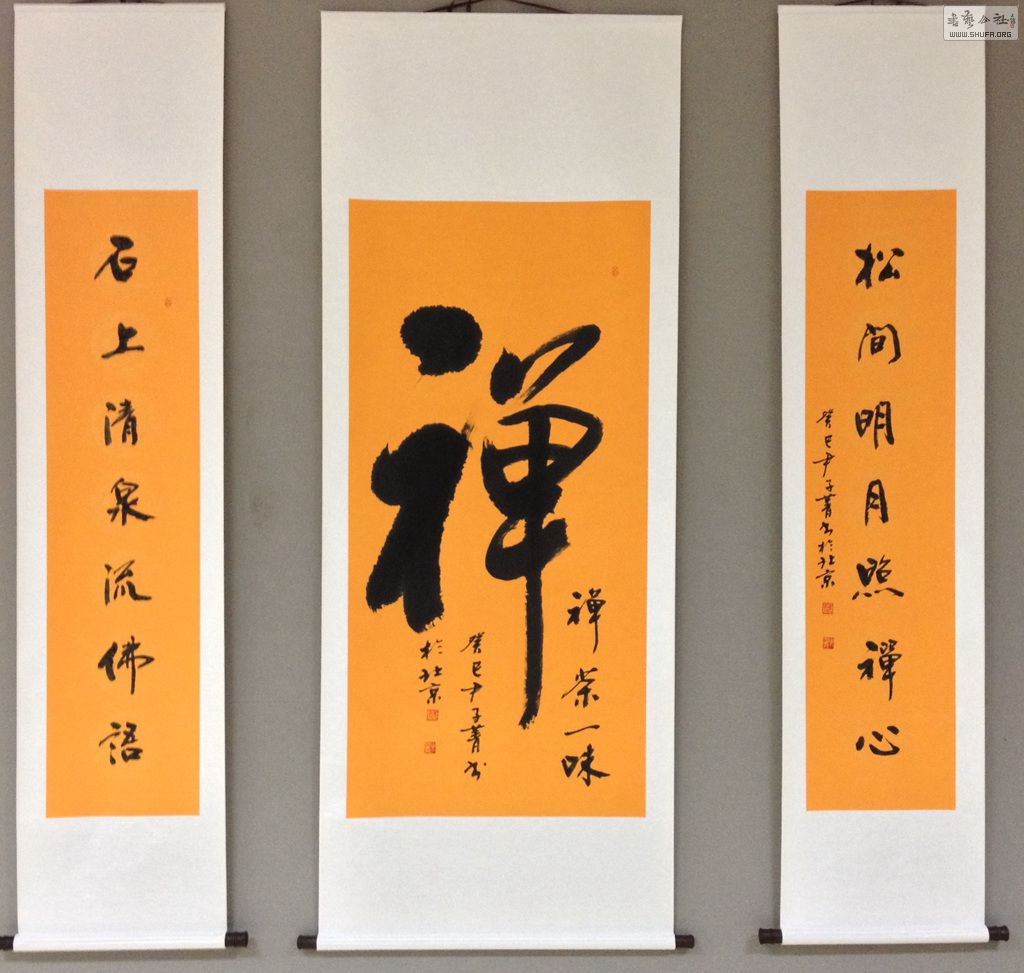 松間明月照禪心
癸巳尹子菁書於北京
禪
禪茶一味
癸巳尹子菁書
於北京
石上清泉流佛語
書藝公社
WWW.SHUFA.ORG